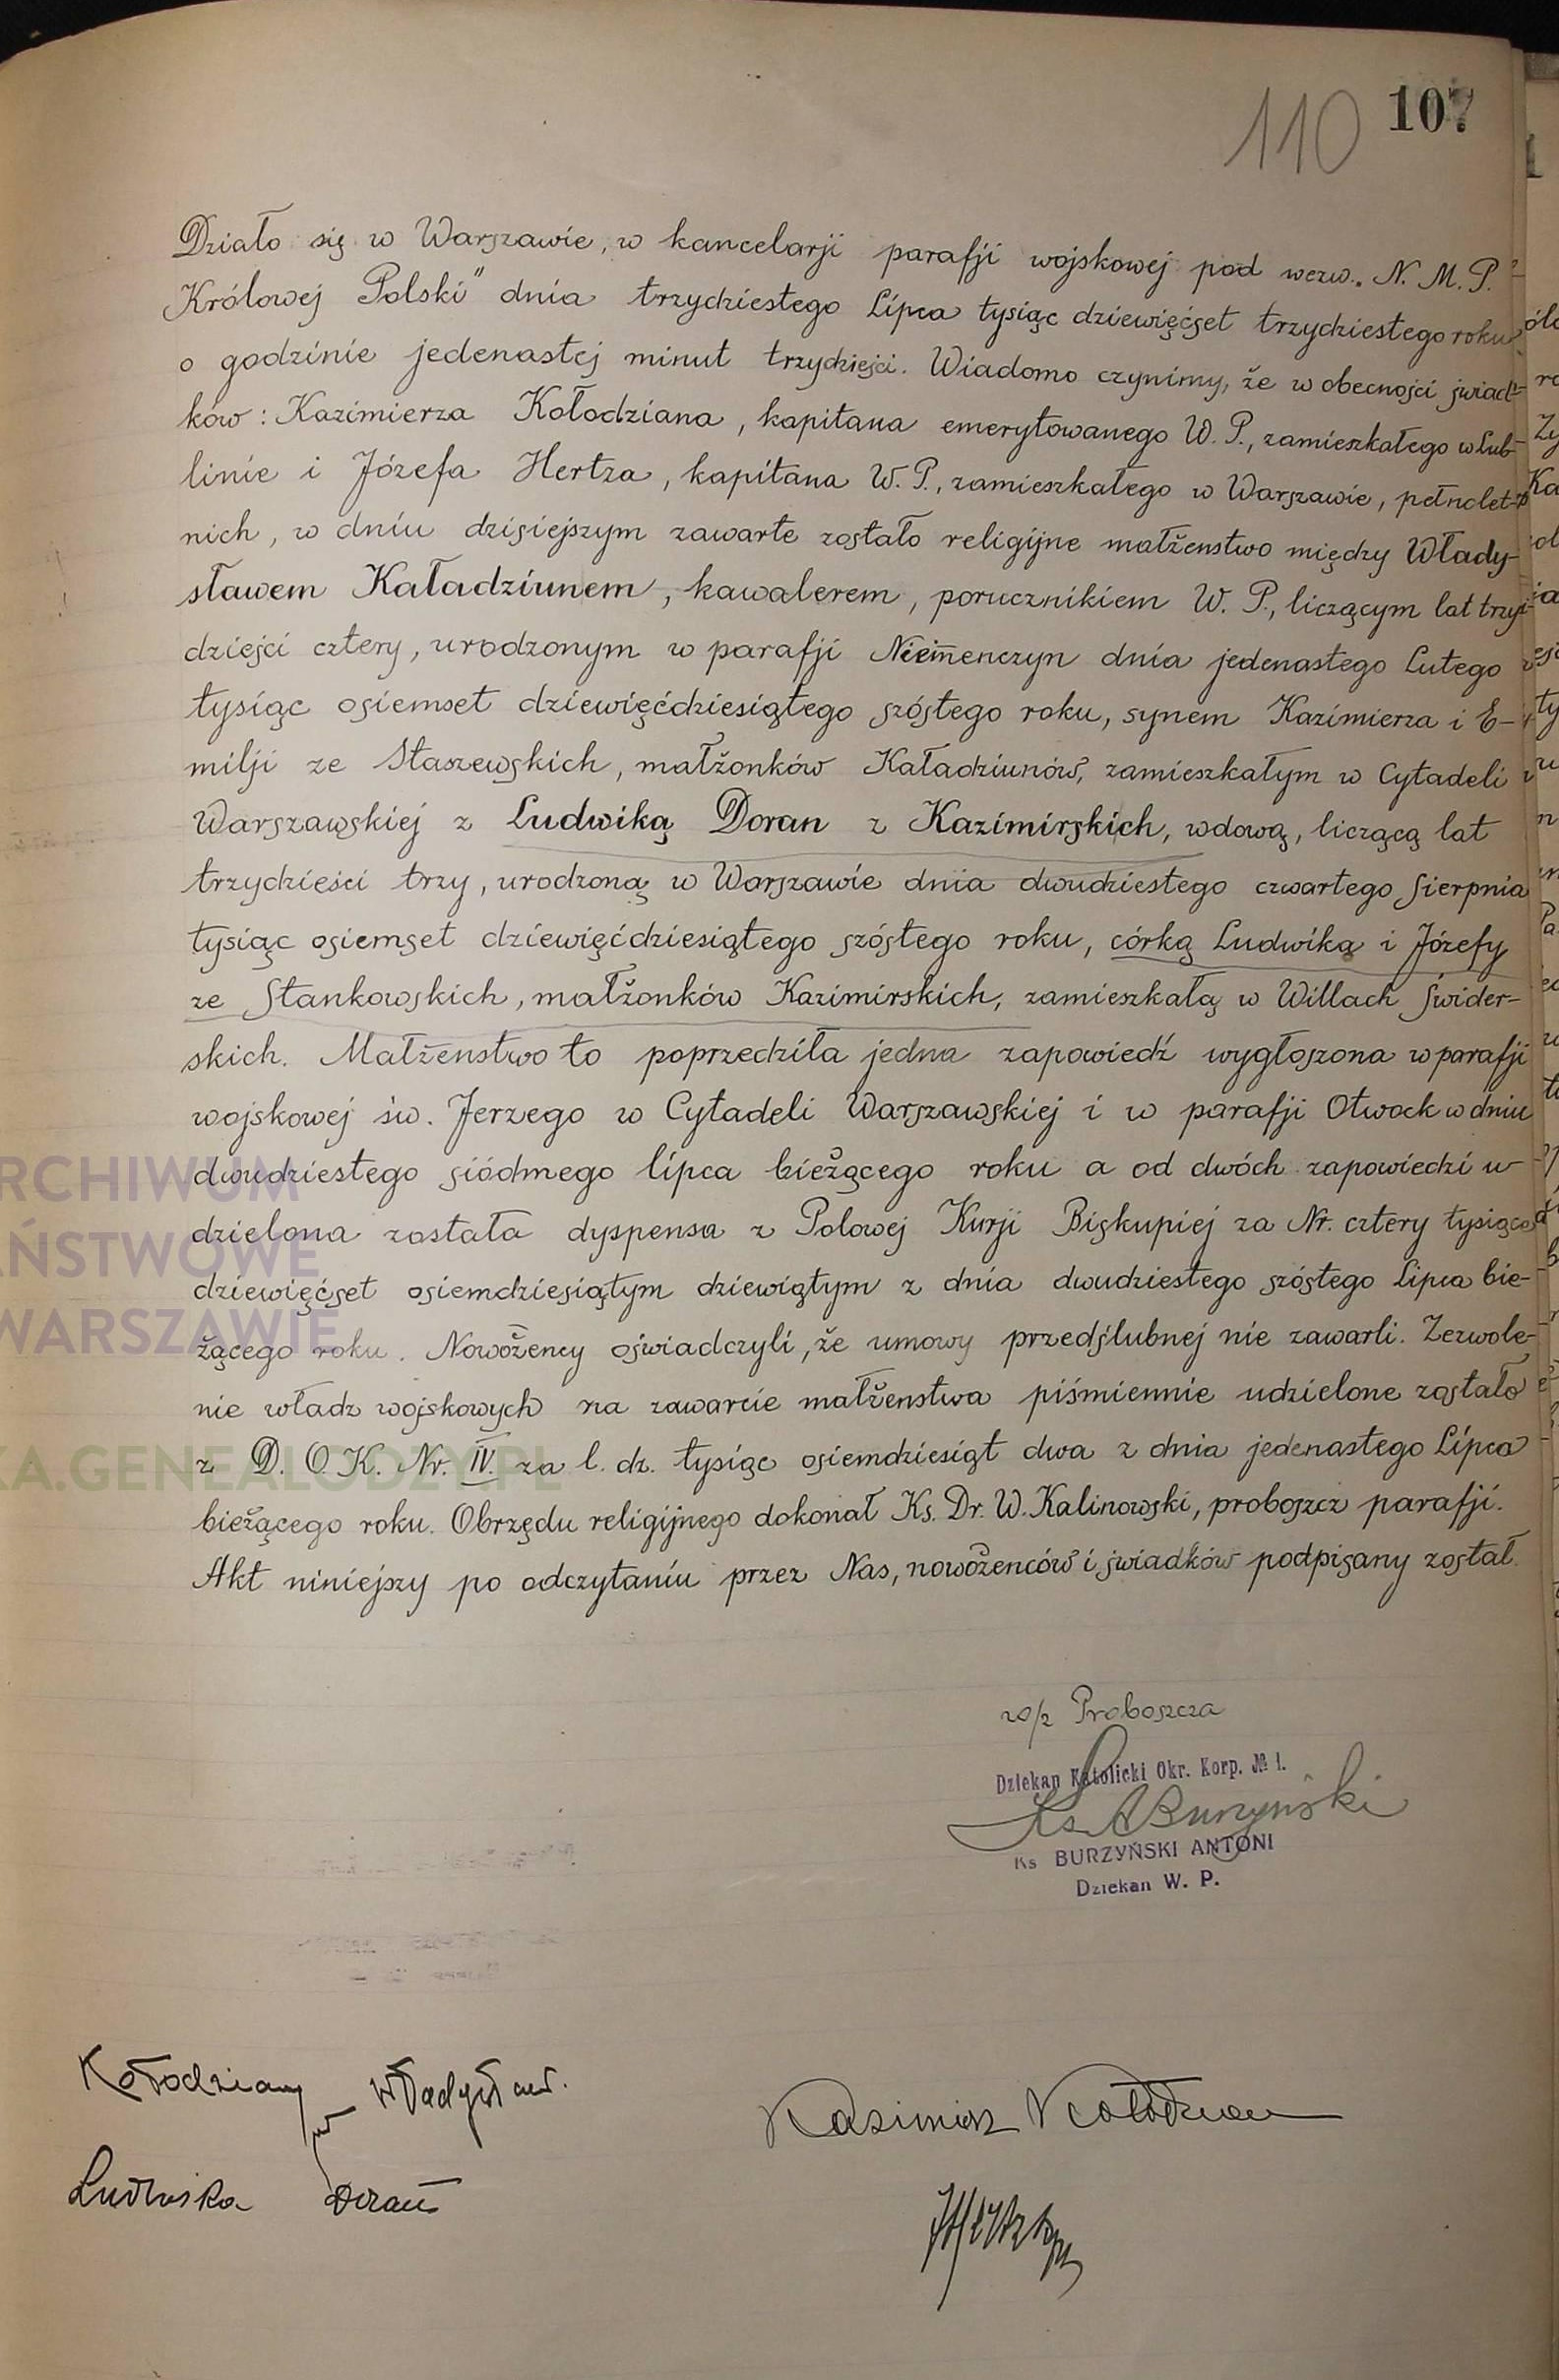 110 107
Działo się w Warszawie, w kancelarji parafji wojskowej pod wezw. „N. M. P.
Królowej Polski" dnia trzydziestego Lipca tysiąc dziewięćset trzydziestego roku
o godzinie jedenastej minut trzydzieści. Wiadomo czynimy, że w obecności świad-
ków: Kazimierza Kołodziana, kapitana emerytowanego W. P., zamieszkałego w Lub-
linie i Józefa Hertza, kapitana W. P., zamieszkałego w Warszawie, pełnolet-
nich, w dniu dzisiejszym zawarte zostało religijne małżeństwo między Włady-
sławem Kaładziunem, kawalerem, porucznikiem W. P., liczącym lat trzy-
dzieści cztery, urodzonym w parafji Niemenczyn dnia jedenastego Lutego
tysiąc osiemset dziewięćdziesiątego szóstego roku, synem Kazimierza i E-
milji ze Staszewskich, małżonków Kaładziunów, zamieszkałym w Cytadeli
Warszawskiej z Ludwiką Doran z Kazimirskich, wdową, liczącą lat
trzydzieści trzy, urodzoną w Warszawie dnia dwudziestego czwartego Sierpnia
tysiąc osiemset dziewięćdziesiątego szóstego roku, córką Ludwika i Józefy
ze Stankowskich, małżonków Kazimirskich, zamieszkałą w Willach Świder-
skich. Małżeństwo to poprzedziła jedna zapowiedź wygłoszona w parafji
wojskowej św. Jerzego w Cytadeli Warszawskiej i w parafji Otwock w dniu
dwudziestego siódmego lipca bieżącego roku a od dwóch zapowiedzi u-
dzielona została dyspensa z Polowej Kurji Biskupiej za Nr. cztery tysiące
dziewięćset osiemdziesiątym dziewiątym z dnia dwudziestego szóstego Lipca bie-
żącego roku. Nowożeńcy oświadczyli, że umowy przedślubnej nie zawarli. Zezwole-
nie władz wojskowych na zawarcie małżeństwa piśmiennie udzielone zostało
z D. O. K. Nr. IV. za l. dz. tysiąc osiemdziesiąt dwa z dnia jedenastego Lipca
bieżącego roku. Obrzędu religijnego dokonał Ks. Dr. W. Kalinowski, proboszcz parafji.
Akt niniejszy po odczytaniu przez Nas, nowożeńców i świadków podpisany został.
w/z Proboszcza
Dziekan Katolicki Okr. Korp. № 1.
Ks A Burzyński
Ks BURZYŃSKI ANTONI
Dziekan W. P.
Kołodzian Władysław.
Ludwika Doran
Kazimierz Kołodzian
ARCHIWUM
PAŃSTWOWE
WARSZAWIE
KA.GENEALODZY.PL